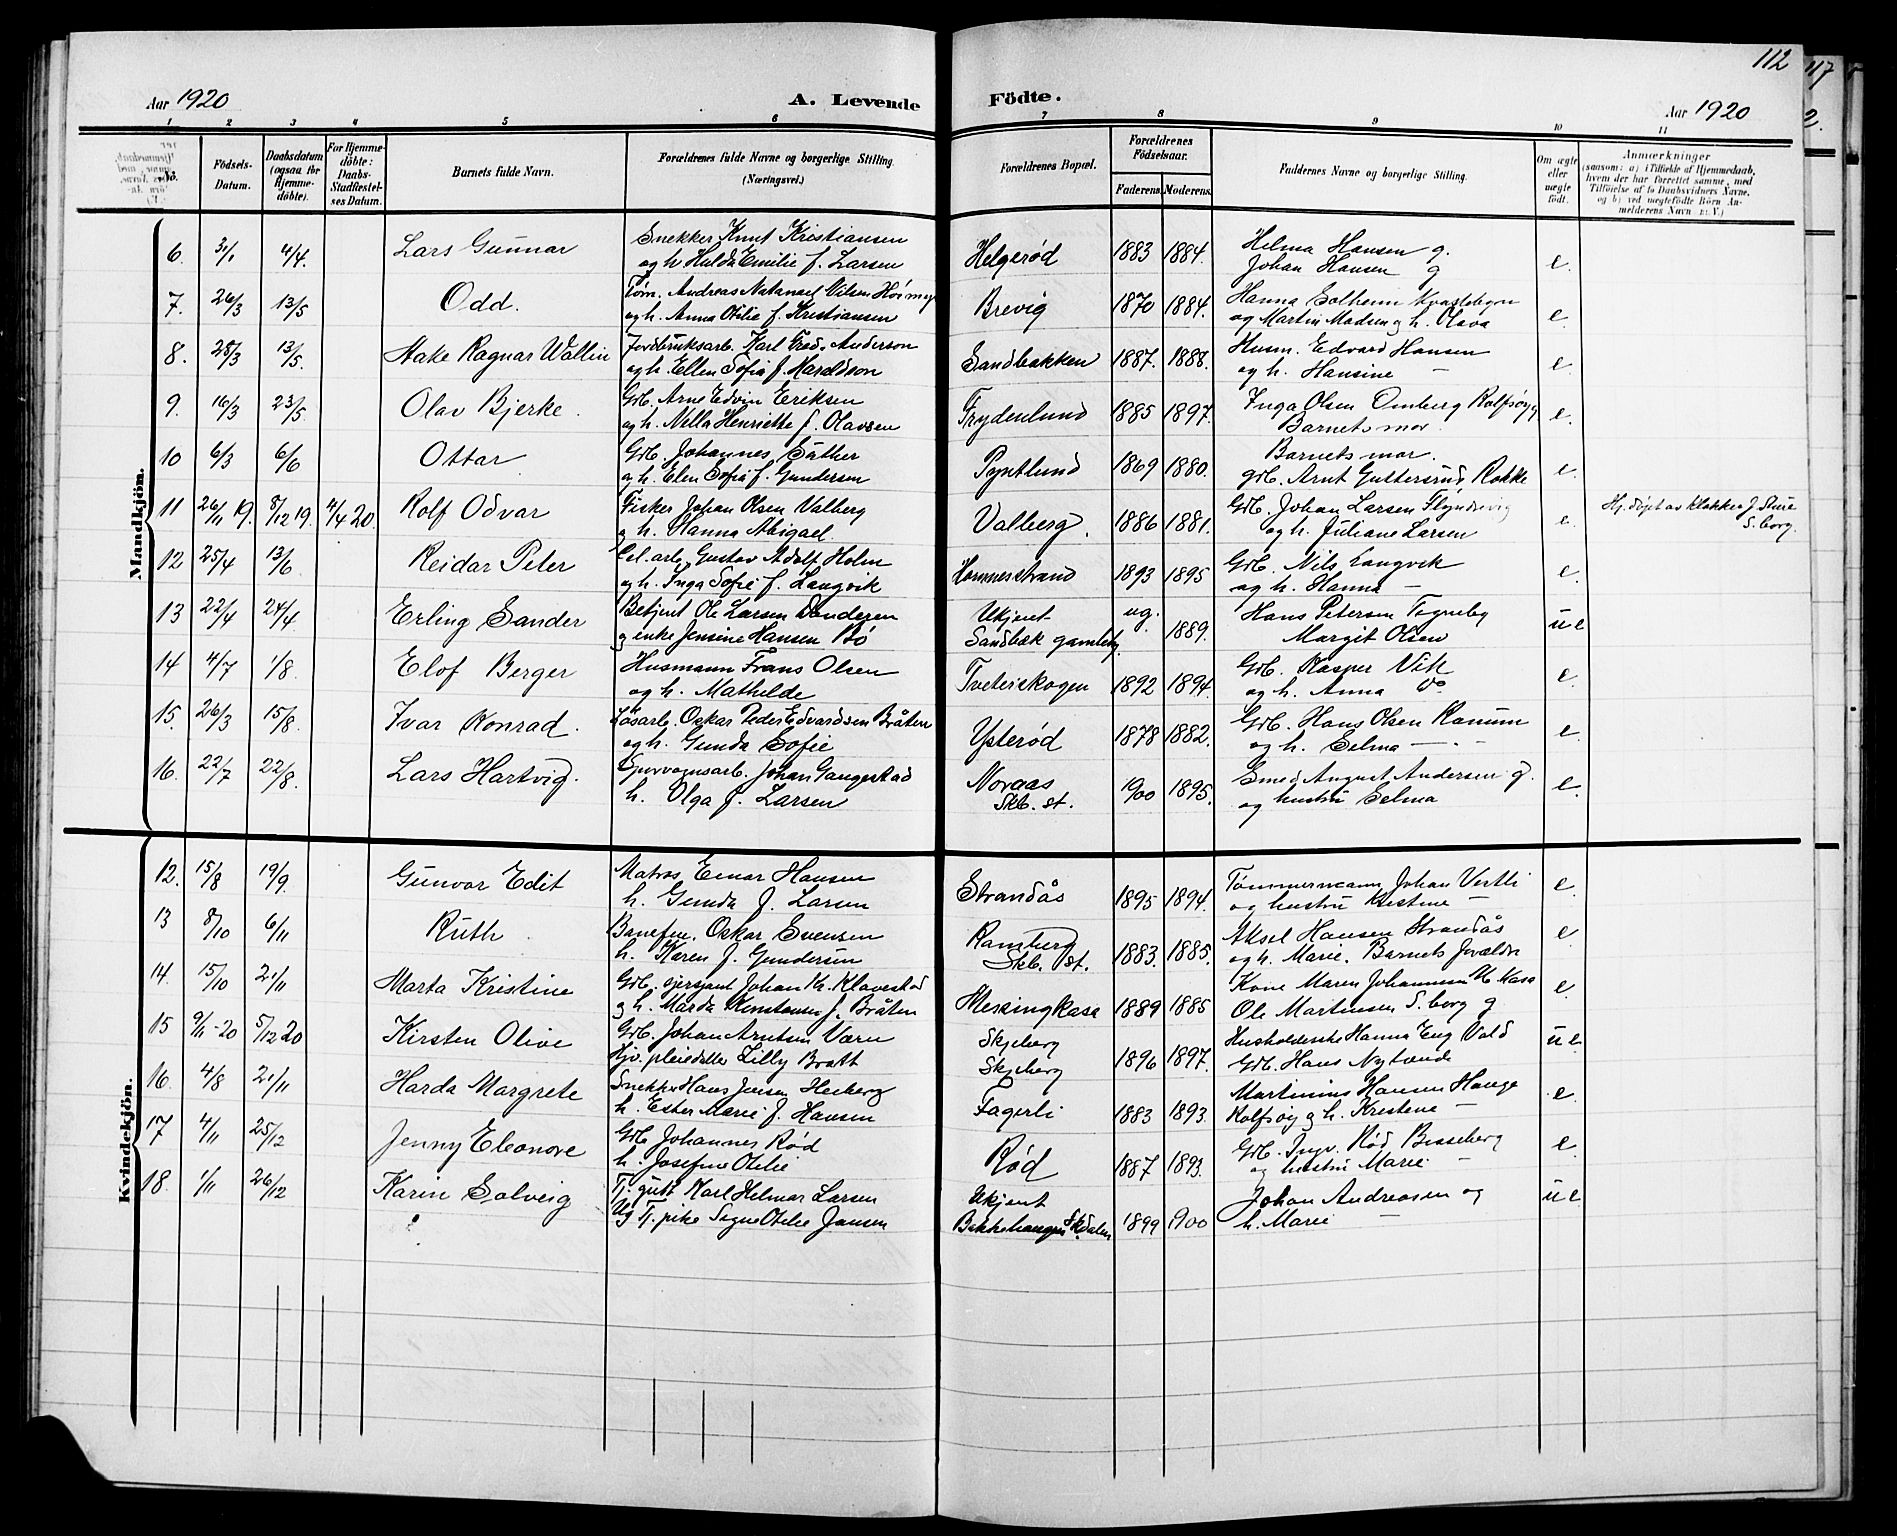 112
117
2.
Aar 1920
A. Levende Födte.
Aar 1920
1 2 3 4 5 6 7 8 9 10 11
No.
Födsels-Datum.
Daabsdatum (ogsaa for Hjemmedöbte).
For Hjemmedöbte: Daabs-Stadfæstelses Datum.
Barnets fulde Navn.
Forældrenes fulde Navne og borgerlige Stilling.
(Næringsvei.)
Forældrenes Bopæl.
Forældrenes Födselsaar.
Faderens. Moderens.
Faddernes Navne og borgerlige Stilling.
Om ægte eller uægte födt.
Anmærkninger
(saasom: a) i Tilfælde af Hjemmedaab, hvem der har forrettet samme, med Tilföielse af to Daabsvidners Navne, og b) ved uegtefödte Börn Anmelderens Navn m. V.)
Mandkjön.
6. 3/1 4/4. Lars Gunnar Snekker Knut Kristiansen Helgerød 1883 1884. Helma Hansen g. e.
og h. Hulda Emilie f. Larsen Johan Hansen g
7. 26/3 13/5 Odd. Tøm. Andreas Natanael Nilsen Brevig 1870 1884. Hanna Solheim e.
og h. Anna Otilie f. Kristiansen og Martin Madsen g h. Olava
8. 28/3 13/5. Åake Ragnar Wallin Jordbruksarb. Karl Fred. Anderson Sandbakken 1887. 1888. Husm. Edvard Hansen e.
og h. Ellen Sofia f. Haraldson og h. Hansine —
9. 16/3 23/5 Olav Bjerke. Grb. Arne Edvin Eriksen Frydenlund 1885 1897. Inga Olsen Omberg Rolfsøy g e.
og h. Nella Henriette f. Olavsen Barnets mor.
10 6/3 6/6 Ottar Grb. Johannes Sæther Pyntlund 1869 1880. Barnets mor. e.
og h. Elen Sofie f. Gundersen grb. Arnt Guttersrud, Rokke
11 26/11 19. 8/12 19. 4/4 20. Rolf Odvar Fisker Johan Olsen Valberg Valberg. 1886 1881. Grb. Johan Larsen Flyndrevig e. Hj. døpt av klokker J. Sture
g h. Hanna Abigael og h. Juliane Larsen S.borg.
12 25/4 13/6 Reidar Peter Cel. arb. Gustav Adolf Holm Hornnesstrand 1893 1895 Grb. Nils Langvik e.
og h. Inga Sofie f. Langvik og h. Hanna —
13 22/4 24/4 Erling Sander Betjent Ole Larsen ug. Hans Petersen Togneby u e
g enke Jensine Hansen Bø Ukjent
Sandbæk gamleby. 1889. Margit Olsen
14 4/7 1/8. Elof Berger Husmann Frans Olsen Tveterskogen 1892 1894. Grb. Kasper Vik e.
og h. Mathilde og h. Anna Do
15. 26/3 15/8. Ivar Konrad. Løsarb. Oskar Peder Edvardsen Bråten Ysterød 1878 1882. Grb. Hans Olsen Ramum e.
og h. Gunda Sofie og h. Selma —
16. 22/7 22/8. Lars Hartvig. Sporvognsarb. Johan Gangestad Noraas 1900 1895. Smed August Andersen g. e.
h. Olga f. Larsen Skb. st. og hustru Selma
Kvindekjön.
12. 15/8 19/9. Gunvor Edit Matros Einar Hansen Strandås 1895 1894. Tømmermann Johan Vestli e.
h. Gunda f. Larsen og hustru Kristine —
13 8/10 6/11 Ruth Banefm. Oskar Svensen Ramberg 1883. 1885. Aksel Hansen Strandås e
h. Karen f. Gundersen Skb. st. og h. Marie. Barnets foreldre
14. 15/10 21/11 Marta Kristine Grb. sersjant Johan Kr. Klavestad Messingkasa 1889 1885 Kone Maren Johannesen M. kasa e.
g h. Marda Konstanse f. Bråten Ole Martinsen S.borg g
15 9/11 - 20 5/12 20 Kirsten Olive Grb. Johan Arntsen Varn Skjeberg Husholderske Hanna Eng Vold u e.
Hjv. pleiedatter Lilly Bratt Skjeberg 1896 1897. Grb. Hans Nytænde
16. 4/8 21/11 Harda Margrete Snekker Hans Jensen Herberg Fagerli 1883 1893. Martinius Hansen Hauge e.
h. Ester Marie f. Hansen Rolfsøy g h. Kristine —
17 4/11 25/12 Jenny Eleonore Grb Johannes Rød Rød 1887 1893. Grb. Ingv. Rød Bisseberg e.
h. Josefine Otilie og hustru Marie —
18. 1/11 26/12 Karin Solveig Tj. gutt Karl Helmer Larsen Ukjent Johan Andreasen og u e
Ug Tj. pike Signe Otelie Jansen Bakkehaugen Skdalen 1899 1900 h. Marie —